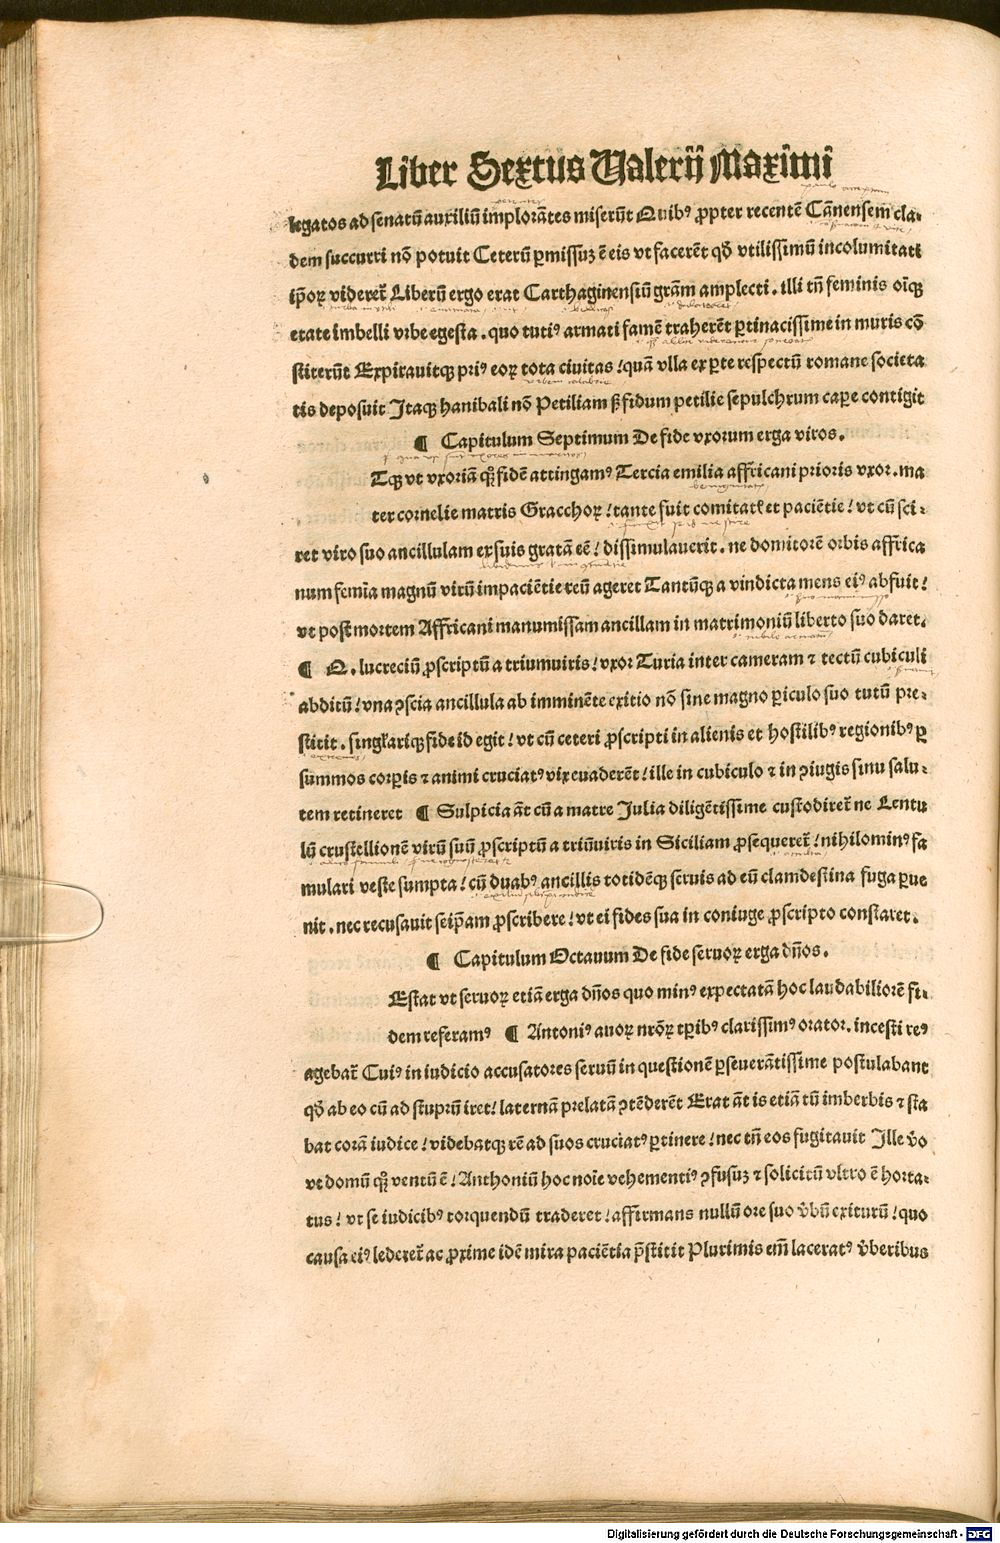 Liber Sextus Valerij Maximi
legatos ad senatū auxiliū implorātes miserūt Quibꝰ ꝓpter recentē Cānensem cla-
dem succurri nō potuit Ceterū ꝑmissuꝫ ē eis vt facerēt qđ vtilissimū incolumitati
ip̄oꝝ videret̄ Liberū ergo erat Carthaginensiū grām amplecti. illi tn̄ feminis oīqꝫ
etate imbelli vrbe egesta. quo tutiꝰ armati famē traherēt ꝑtinacissime in muris cō
stiterūt Expirauitqꝫ priꝰ eoꝝ tota ciuitas / quā vlla ex ꝑte respectū romane societa
tis deposuit Itaqꝫ hanibali nō Petiliam sꝫ fidum petilie sepulchrum caꝑe contigit
¶ Capitulum Septimum De fide vxorum erga viros.
Tqꝫ vt vxoriā qꝫ fidē attingamꝰ Tercia emilia affricani prioris vxor. ma
ter cornelie matris Gracchoꝝ / tante fuit comitatꝭ et paciētie / vt cū sci-
ret viro suo ancillulam ex suis gratā eē / dissimulauerit. ne domitorē orbis affrica
num femīa magnū virū impaciētie reū ageret Tantūqꝫ a vindicta mens eiꝰ abfuit /
vt post mortem Affricani manumissam ancillam in matrimoniū liberto suo daret.
¶ Q. lucreciū ꝓscriptū a triumuiris / vxor Turia inter cameram ⁊ tectū cubiculi
abditū / vna ꝯscia ancillula ab imminēte exitio nō sine magno ꝑiculo suo tutū pre-
stitit. singl̄ariqꝫ fide id egit / vt cū ceteri ꝓscripti in alienis et hostilibꝰ regionibꝰ ꝑ
summos corꝑis ⁊ animi cruciatꝰ vix euaderēt / ille in cubiculo ⁊ in ꝯiugis sinu salu-
tem retineret ¶ Sulpicia āt cū a matre Julia diligētissime custodiret̄ ne Lentu
lū crustellionē virū suū ꝓscriptū a triūuiris in Siciliam ꝓsequeret̄ / nihilominꝰ fa
mulari veste sumpta / cū duabꝰ ancillis totidēqꝫ seruis ad eū clamdestina fuga ꝑue
nit. nec recusauit seip̄am ꝓscribere / vt ei fides sua in coniuge ꝓscripto constaret.
¶ Capitulum Octauum De fide seruoꝝ erga dn̄os.
Estat vt seruoꝝ etiā erga dn̄os quo minꝰ expectatā hoc laudabiliorē fi-
dem referamꝰ ¶ Antoniꝰ auoꝝ nr̄oꝝ tꝑibꝰ clarissimꝰ orator. incesti reꝰ
agebat̄ Cuiꝰ in iudicio accusatores seruū in questionē ꝑseuerātissime postulabant
qđ ab eo cū ad stuprū iret / laternā prelatā ꝯtēderēt Erat āt is etiā tū imberbis ⁊ sta
bat corā iudice / videbatqꝫ rē ad suos cruciatꝰ ꝑtinere / nec tn̄ eos fugitauit Ille v̄o
vt domū qꝫ ventū ē / Anthoniū hoc noīe vehementiꝰ ꝯfusuꝫ ⁊ solicitū vltro ē horta-
tus / vt se iudicibꝰ torquendū traderet / affirmans nullū ore suo v̄bū exiturū / quo
causa eiꝰ lederet̄ ac ꝓxime idē mira paciētia p̄stitit Plurimis em̄ laceratꝰ v̄beribus
Digitalisierung gefördert durch die Deutsche Forschungsgemeinschaft - DFG